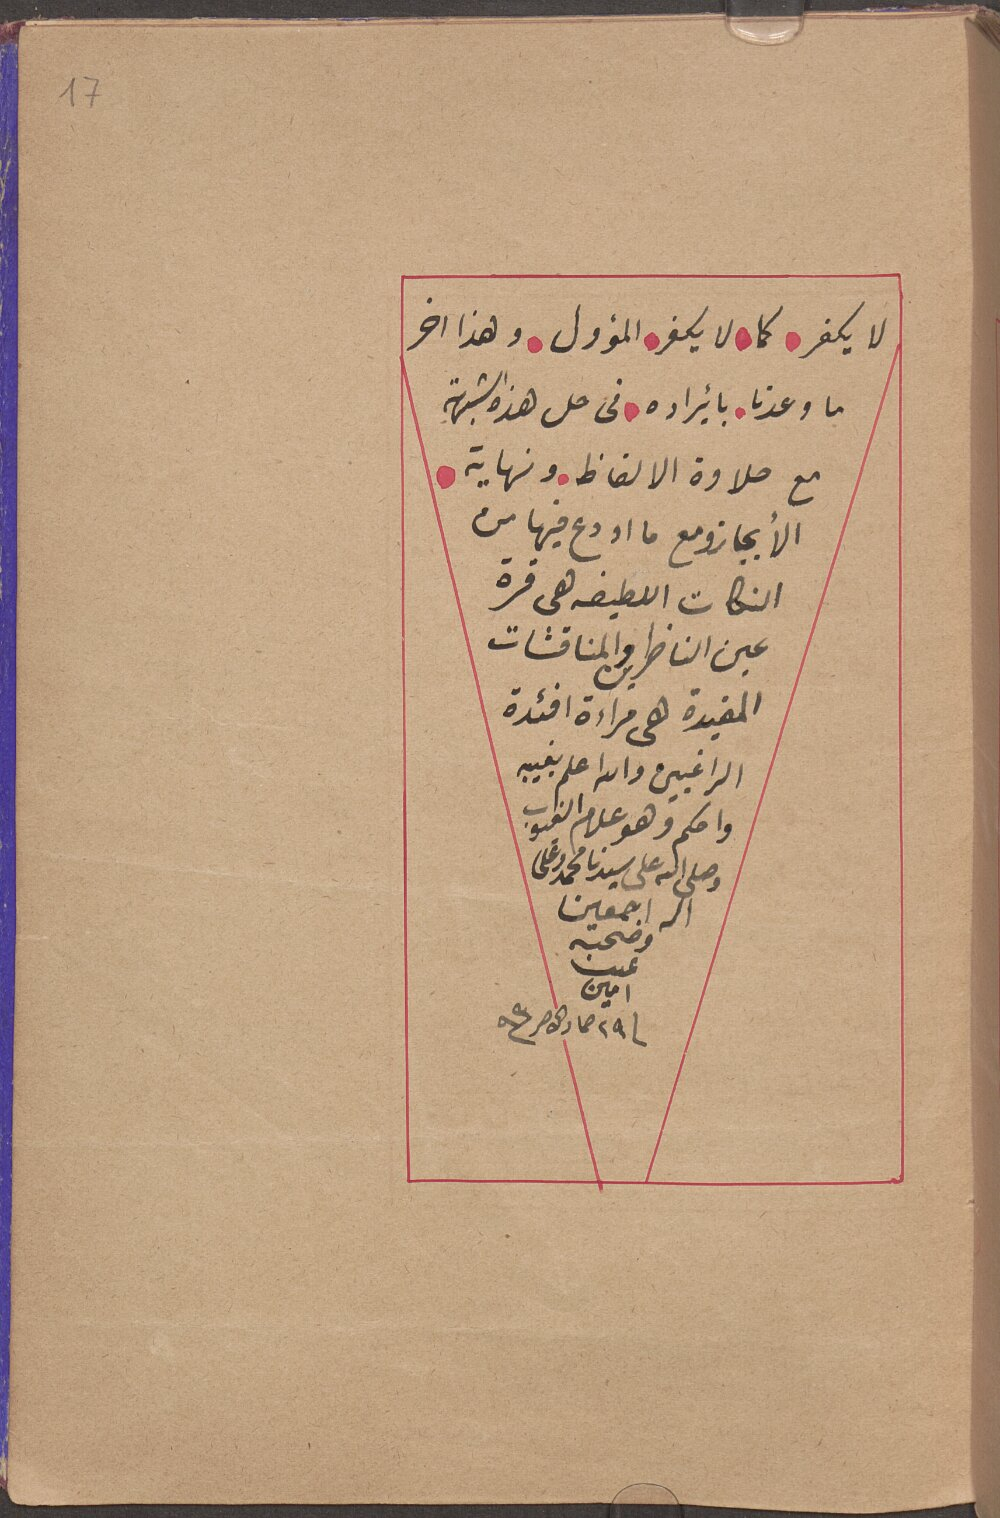 17
لا يكفر . كما . لا يكفر . المؤول . وهذا اخر
ما وعدنا . بائراده . فى حل هذه الشبهة
مع حلاوة الالفاظ . ونهاية .
الأيجاز ومع ما اودع فيها من
النكات اللطيفه هى قرة
عين الناظرين والمناقشات
المفيدة هى مراءة افئدة
الراغبين والله اعلم بغيبه
واحكم وهو علام الغيوب
وصلى الله على سيدنا محمد وعلى
اله اجمعين
وصحبه
امين
٢٩